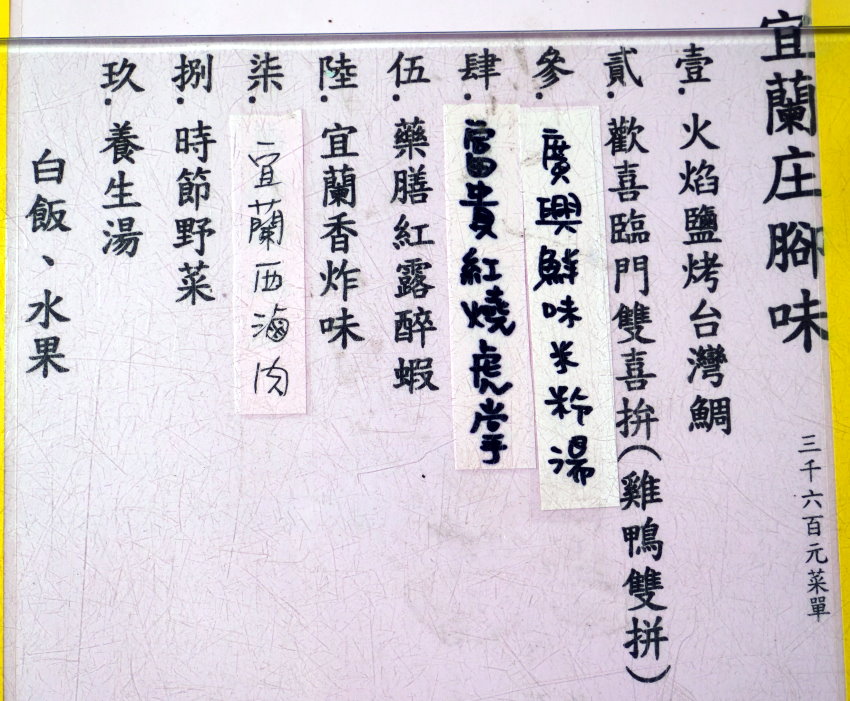 宜蘭庄腳味
三千六百元菜單
壹．火焰鹽烤台灣鯛
貳．歡喜臨門雙喜拚(雞鴨雙拼)
參．廣興鮮味米粉湯
肆．富貴紅燒虎掌
伍．藥膳紅露醉蝦
陸．宜蘭香炸味
柒．宜蘭西滷肉
捌．時節野菜
玖．養生湯
白飯、水果